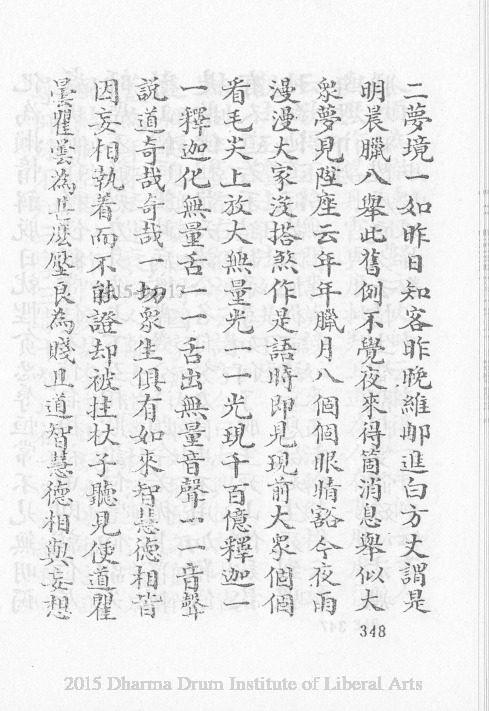 二夢境一如昨日知客昨晚維那進白方丈謂是
明晨臘八舉此舊例不覺夜來得箇消息舉似大
衆夢見陞座云年年臘月八個個眼睛豁今夜雨
漫漫大家沒搭煞作是語時即見現前大衆個個
看毛尖上放大無量光一一光現千百億釋迦一
一釋迦化無量舌一一舌出無量音聲一一音聲
説道奇哉奇哉一切衆生俱有如來智慧德相皆
因妄相執着而不能證却被拄杖子聽見便道瞿
曇瞿曇為甚麽壓良為賤且道智慧德相與妄想
348
2015 Dharma Drum Institute of Liberal Arts